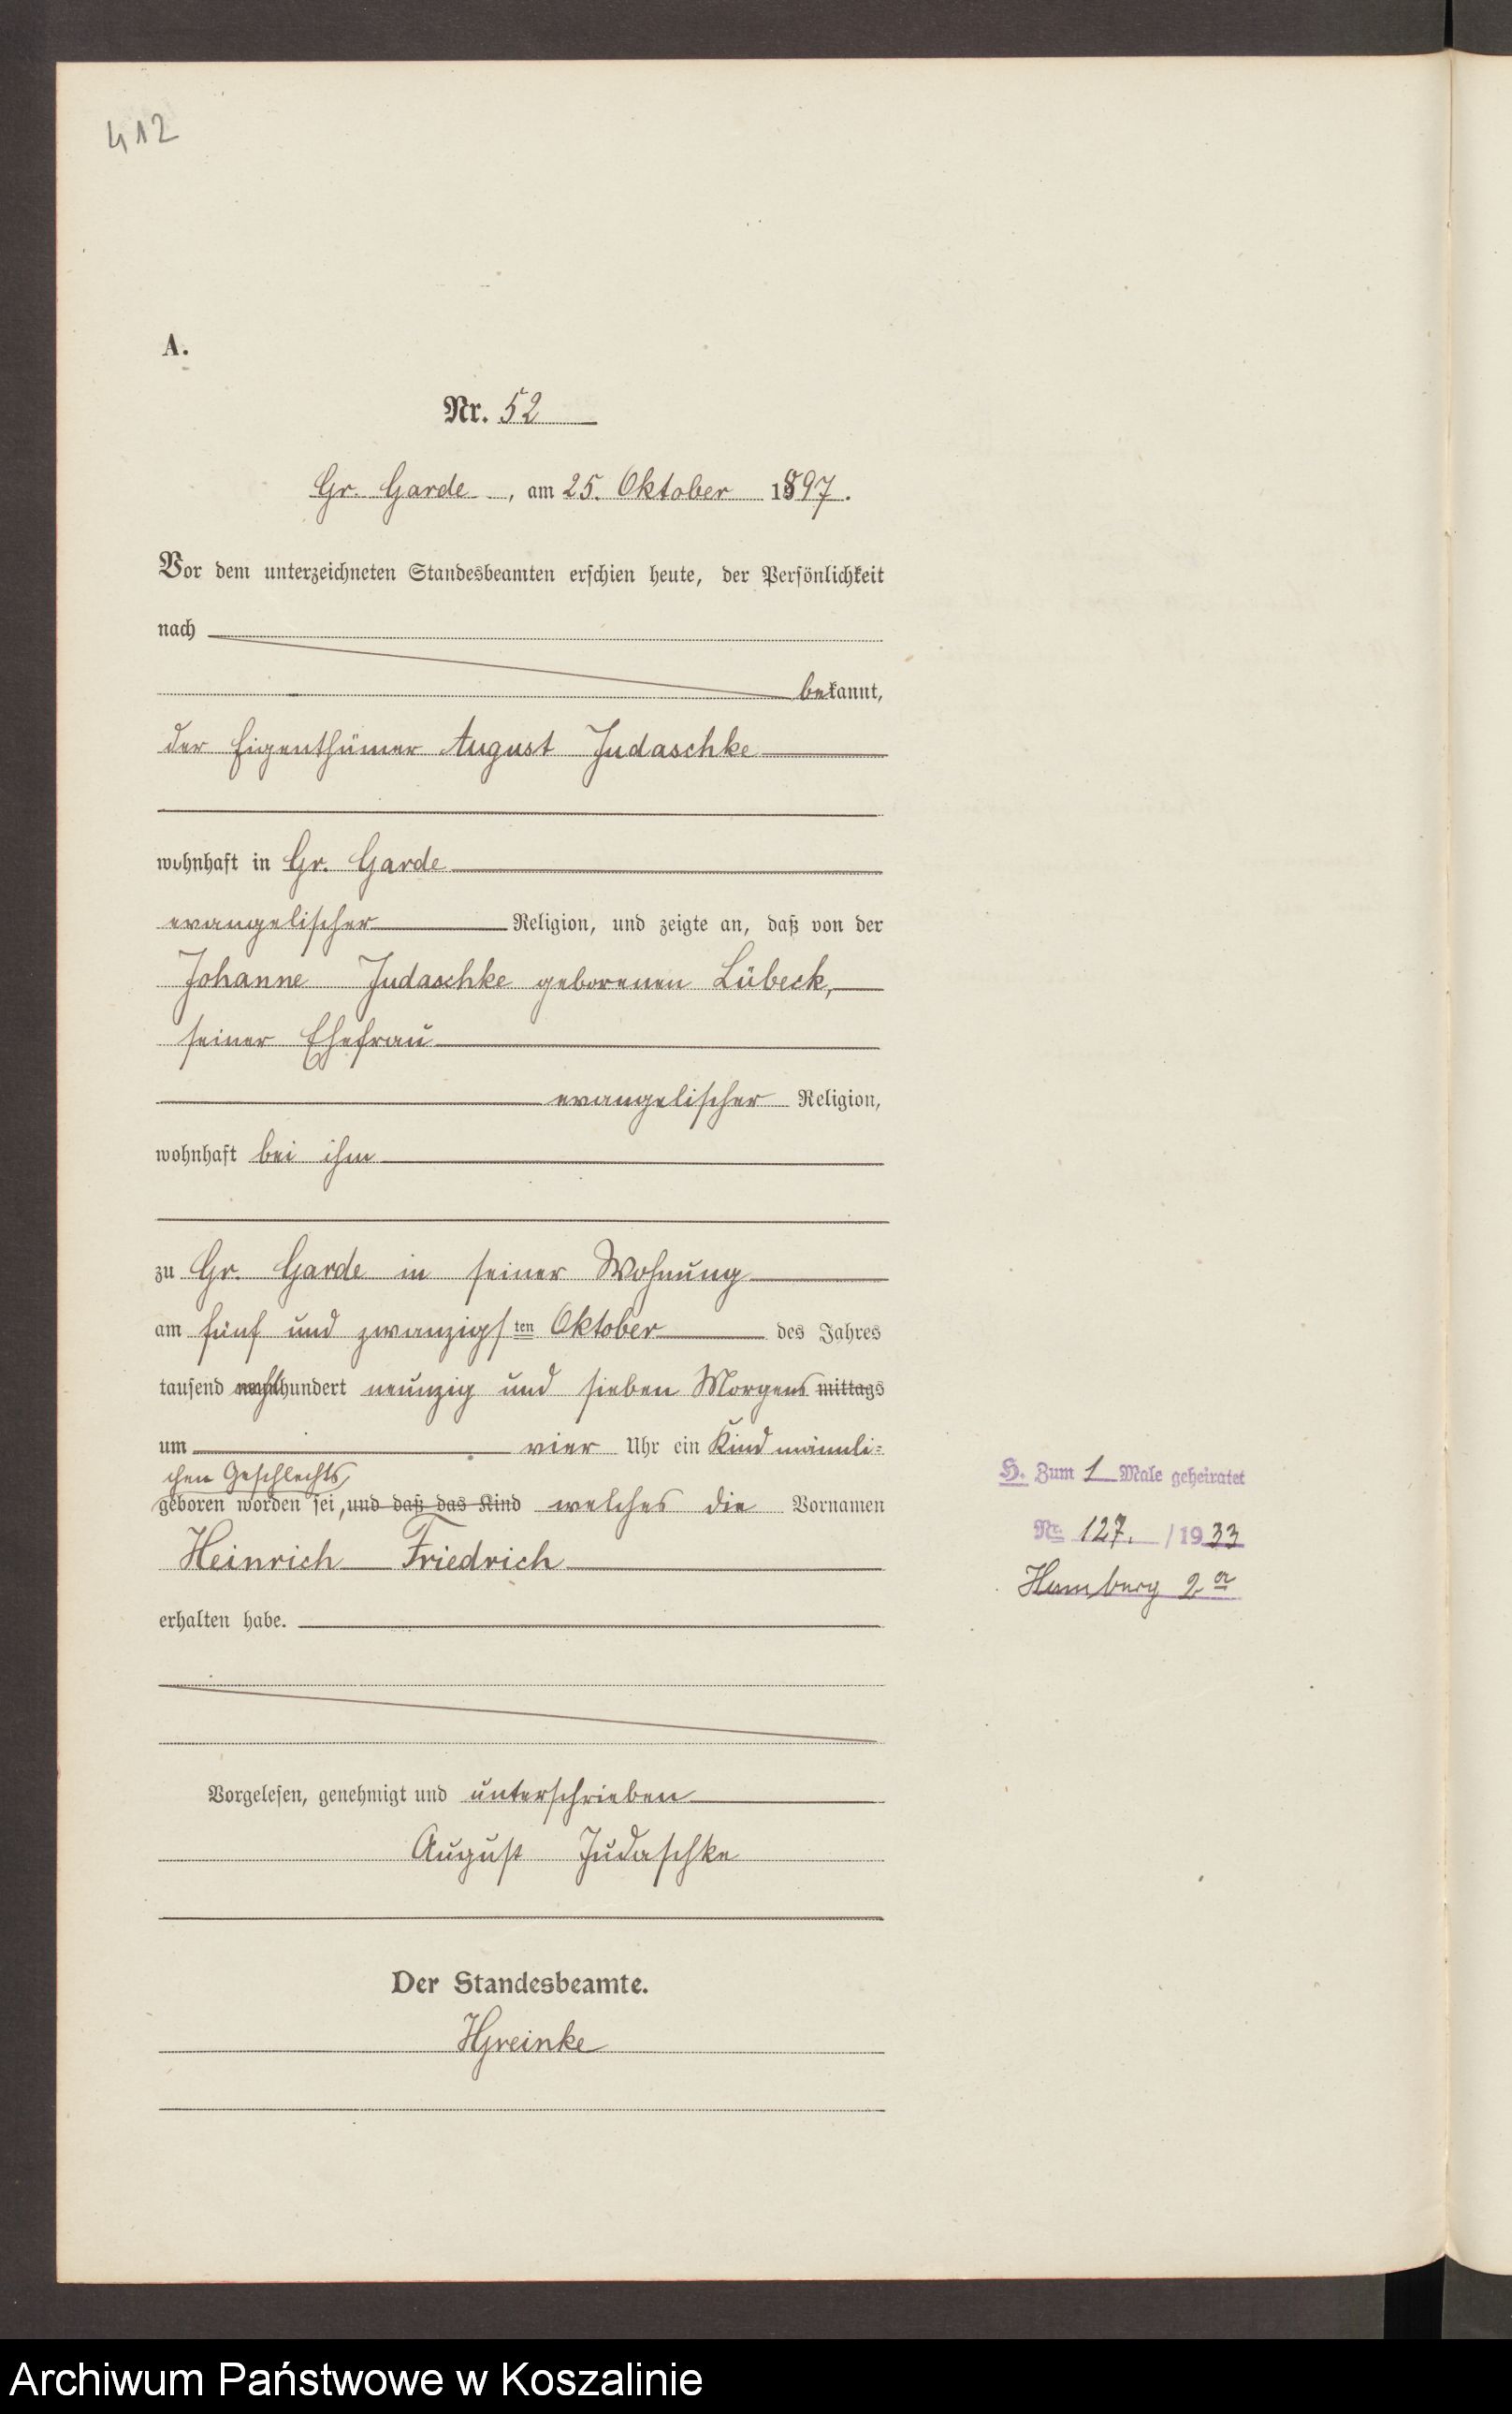 412
A.
Nr. 52
Gr. Garde, am 25. Oktober 1897.
Vor dem unterzeichneten Standesbeamten erschien heute, der Persönlichkeit
nach
bekannt,
der Eigenthümer August Judaschke
wohnhaft in Gr. Garde
evangelischer Religion, und zeigte an, daß von der
Johanne Judaschke geborenen Lübeck,
seiner Ehefrau
evangelischer Religion,
wohnhaft bei ihm
zu Gr. Garde in seiner Wohnung
am fünf und zwanzigsten Oktober des Jahres
tausend hundert neunzig und sieben Morgens mittags
um vier Uhr ein Kind männli=
chen Geschlechts
geboren worden sei, und daß das Kind welches die Vornamen
Heinrich Friedrich
erhalten habe.
Vorgelesen, genehmigt und unterschrieben
August Judaschke
Der Standesbeamte.
HGreinke
H. Zum 1 Male geheiratet
Nr. 127. /1933
Hamburg 2a
Archiwum Państwowe w Koszalinie